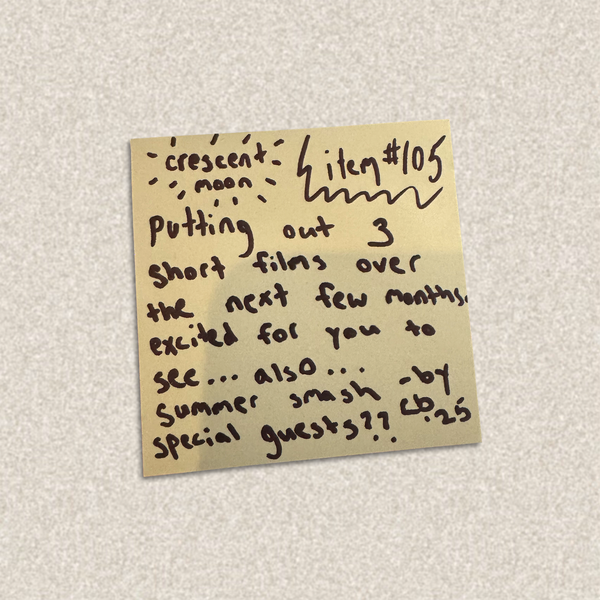 crescent
moon
item #105
putting out 3
short films over
the next few months.
excited for you to
see... also...
summer smash
special guests??
-by
cb.25